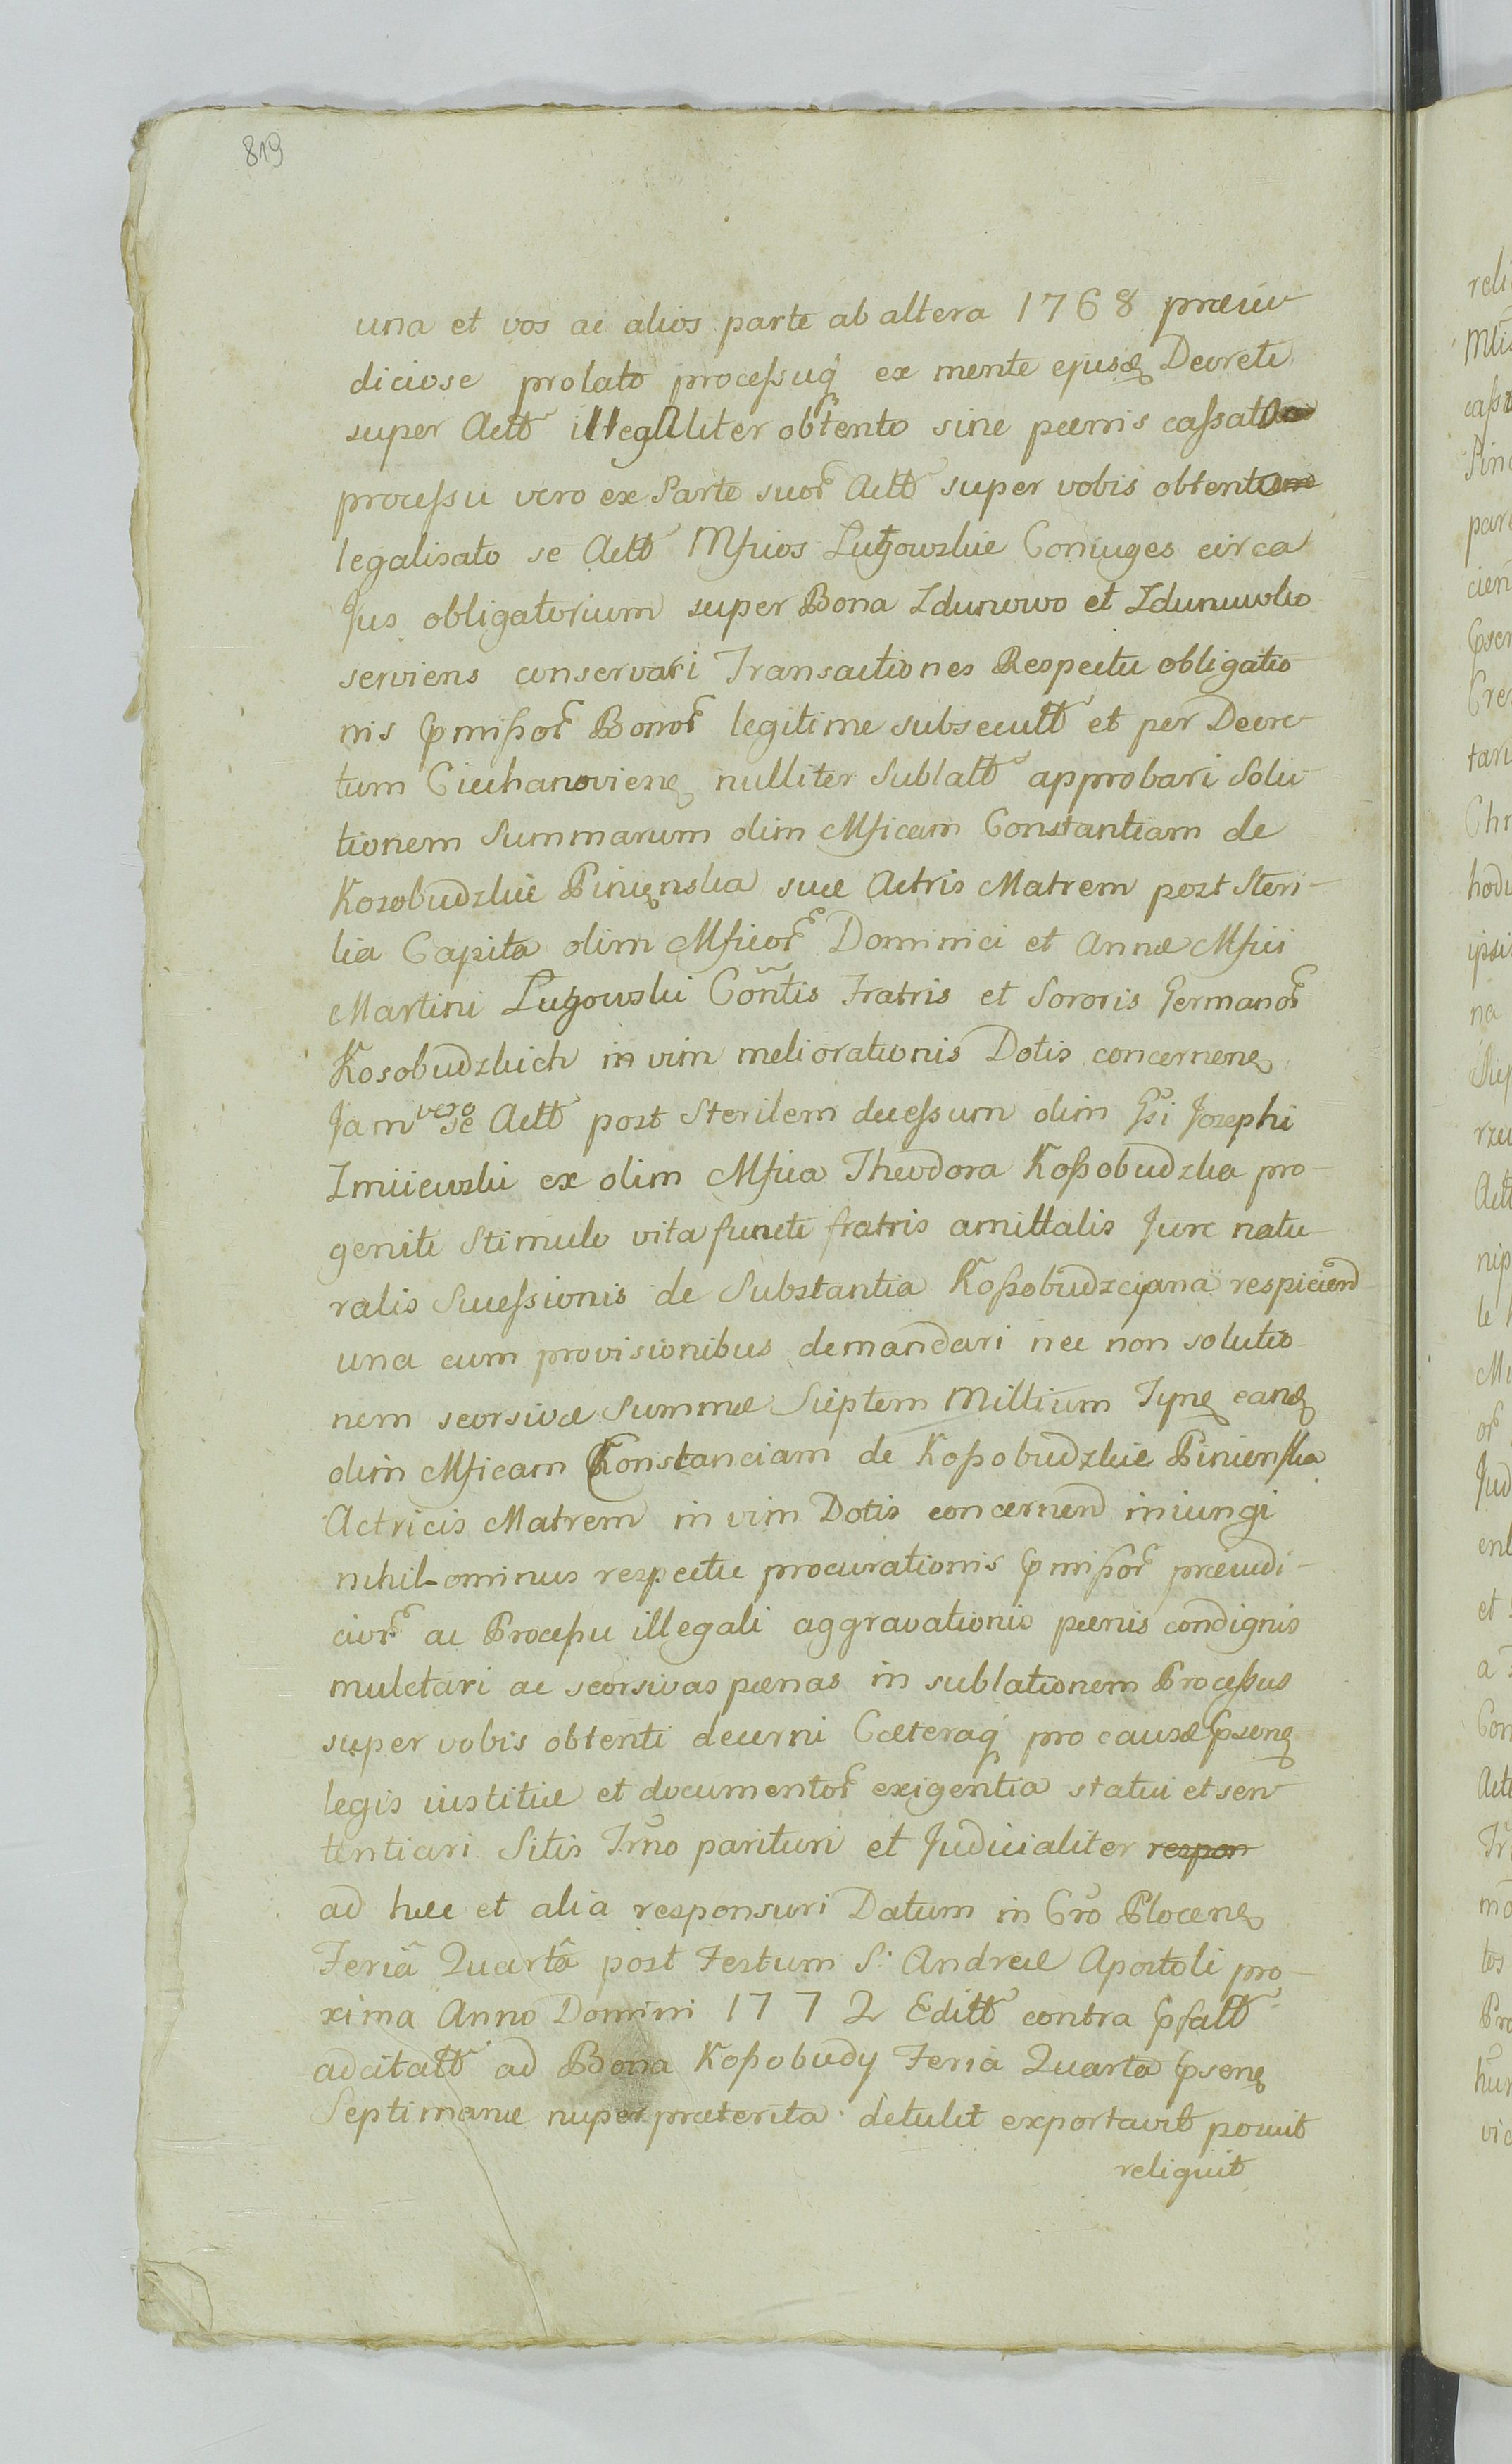 819
una et vos ac alios parte ab altera 1768 præiu-
diciose prolato proceſsuq́ ex mente ejusđ Decreti
super Actt illegaliter obtento sine pænis caſsato
proceſsu vero ex Parte suor Actt super vobis obtento
legalisato se Actt Mficos Lutzowskie Coniuges circa
Jus obligatorium super Bona Zdunowo et Zdunuwko
serviens conservari Transactiones Respectu obligatio
nis pmiſsor Bonor legitime subsecutt et per Decre-
tum Ciechanoviens nulliter Sublatt approbari Solu-
tionem Summarum olim Mficam Constantiam de
Kosobudzkie Pinienska suæ Actris Matrem post Steri-
lia Capita olim Mficor Dominici et Annæ Mfici
Martini Lutzowski Cõntis Fratris et Sororis Germanor
Kosobudzkich in vim meliorationis Dotis concernen
Jam vero se Actt post Sterilem deceſsum olim Gsi Josephi
Zmiiewski ex olim Mfica Theodora Koſsobudzka pro-
geniti Stimulo vita functi fratris amittalis Jure natu-
ralis Succeſsionis de Substantia Koſsobudzciana respiciend
una cum provisionibus demandari nec non solutio
nem seorsivæ Summæ Sieptem Millium Tynf eand
olim Mficam Konstanciam de Koſsobudzkie Pinienſka
Actricis Matrem in vim Dotis concernend iniungi
nihil-ominus respectu procurationis pmiſsor præiudi-
cior ac Proceſsu illegali aggravationis pænis condignis
mulctari ac seorsivas pænas in sublationem Proceſsus
super vobis obtenti decerni Cæteraq́ pro causæ psens
legis iustitiæ et documentor exigentia statui et sen
tentiari Sitis Trño parituri et Judicialiter respon
ad hæc et alia responsuri Datum in Cro Plocens
Feriâ Quartâ post Festum S. Andreæ Apostoli pro-
xima Anno Domini 1772 Editt contra pfatt
adcitatt ad Bona Koſsobudy Feria Quarta psens
Septimanæ nuper præterita detulit exportavit posuit
reliquit